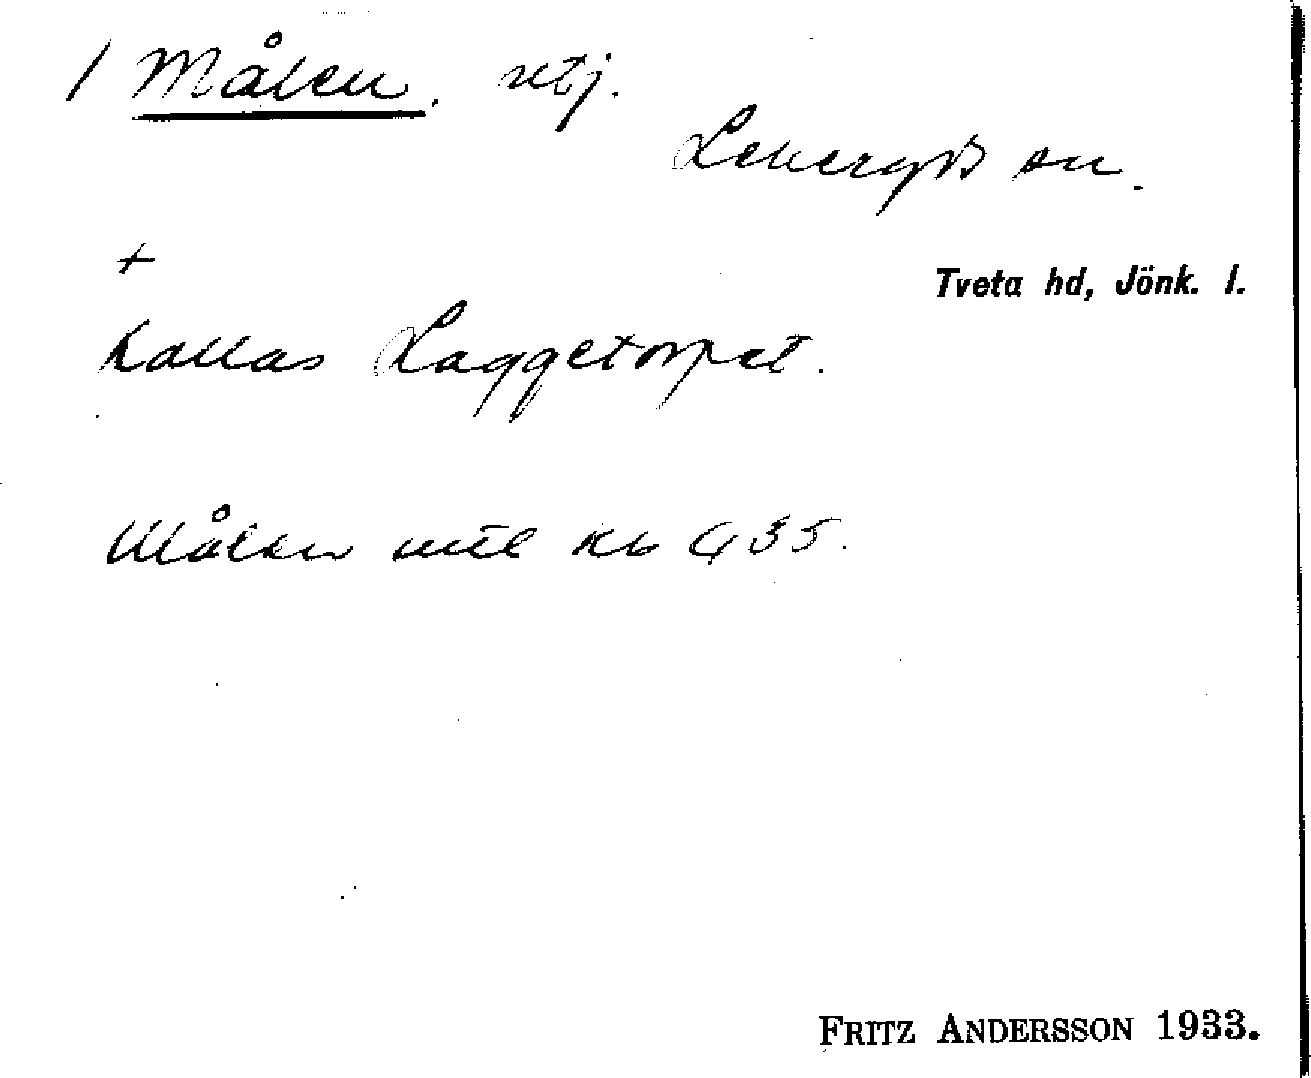 / Målen. utj.
Lekeryds sn.
+
Tveta hd, Jönk. l.
Kallas Laggetorpet.
Målen mtl kb G 35.
FRITZ ANDERSSON 1933.